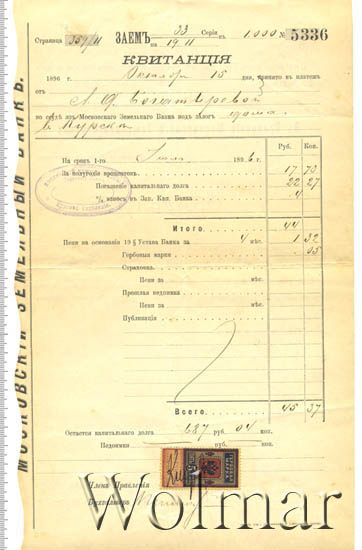 Страница 359/11 ЗАЕМЪ 33 Серіи 1000 № 5336
на 19 11
КВИТАНЦІЯ
1896 г. Октября 15 дня, принято въ платежъ
отъ А. Ф.
по ссудѣ изъ Московскаго Земельнаго Банка подъ залогъ дома
в Курскѣ
Руб. Коп.
На срокъ 1-го Іюля 1896 г.
За полугодіе процентовъ 17 73
Погашеніе капитальнаго долга 22 27
% взносъ въ Зап. Кап. Банка 4
Итого 44
Пени на основаніи 19 § Устава Банка за 4 мѣс. 1 32
Гербовыя марки 05
Страховка
Пени за мѣс.
Прошлая недоимка
Пени за мѣс.
Публикація
Всего 45 37
Остается капитальнаго долга 687 руб. 04 коп.
Недоимки руб. коп.
Члены Правленія
Бухгалтеръ
МОСКОВСКІЙ ЗЕМЕЛЬНЫЙ БАНКЪ.
Wolmar